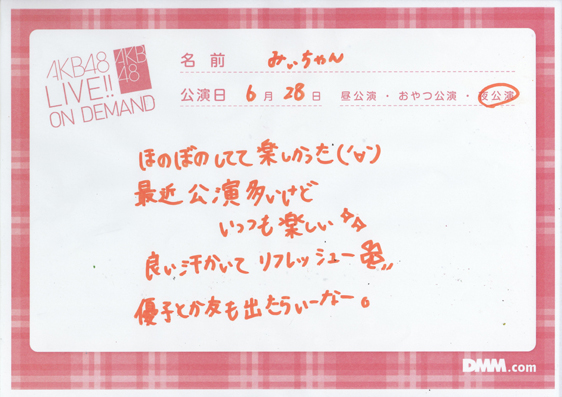 AKB48
LIVE!!
ON DEMAND
AKB
48
名前 みぃちゃん
公演日 6月28日 昼公演・おやつ公演・夜公演
ほのぼのしてて楽しかった(´∀`)
最近公演多いけど
いっつも楽しい
良い汗かいてリフレッシュー
優子とか友も出たらいーなー。
DMM.com